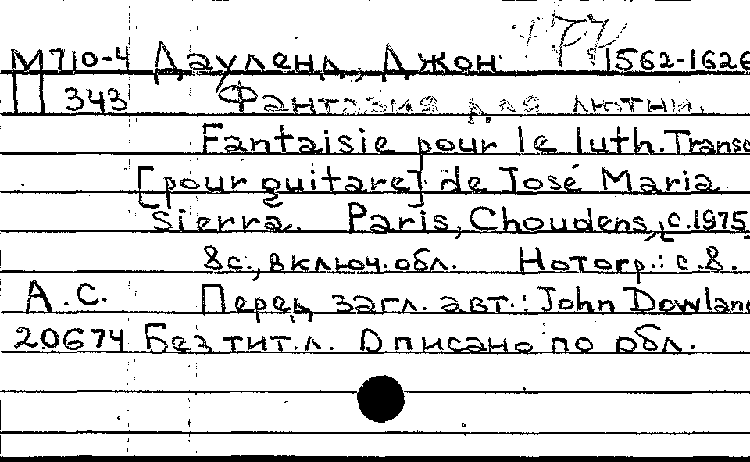 М710-4 Дауленд, Джон 1562-1626
П 343 Фантазия для лютни.
Fantaisie pour le luth. Transc
[pour guitare] de José Maria
Sierra. Paris, Choudens, c.1975.
8с., включ. обл. Нотогр.: с.8.
А.С. Перед загл. авт.: John Dowland
20674 Без тит.л. Описано по обл.